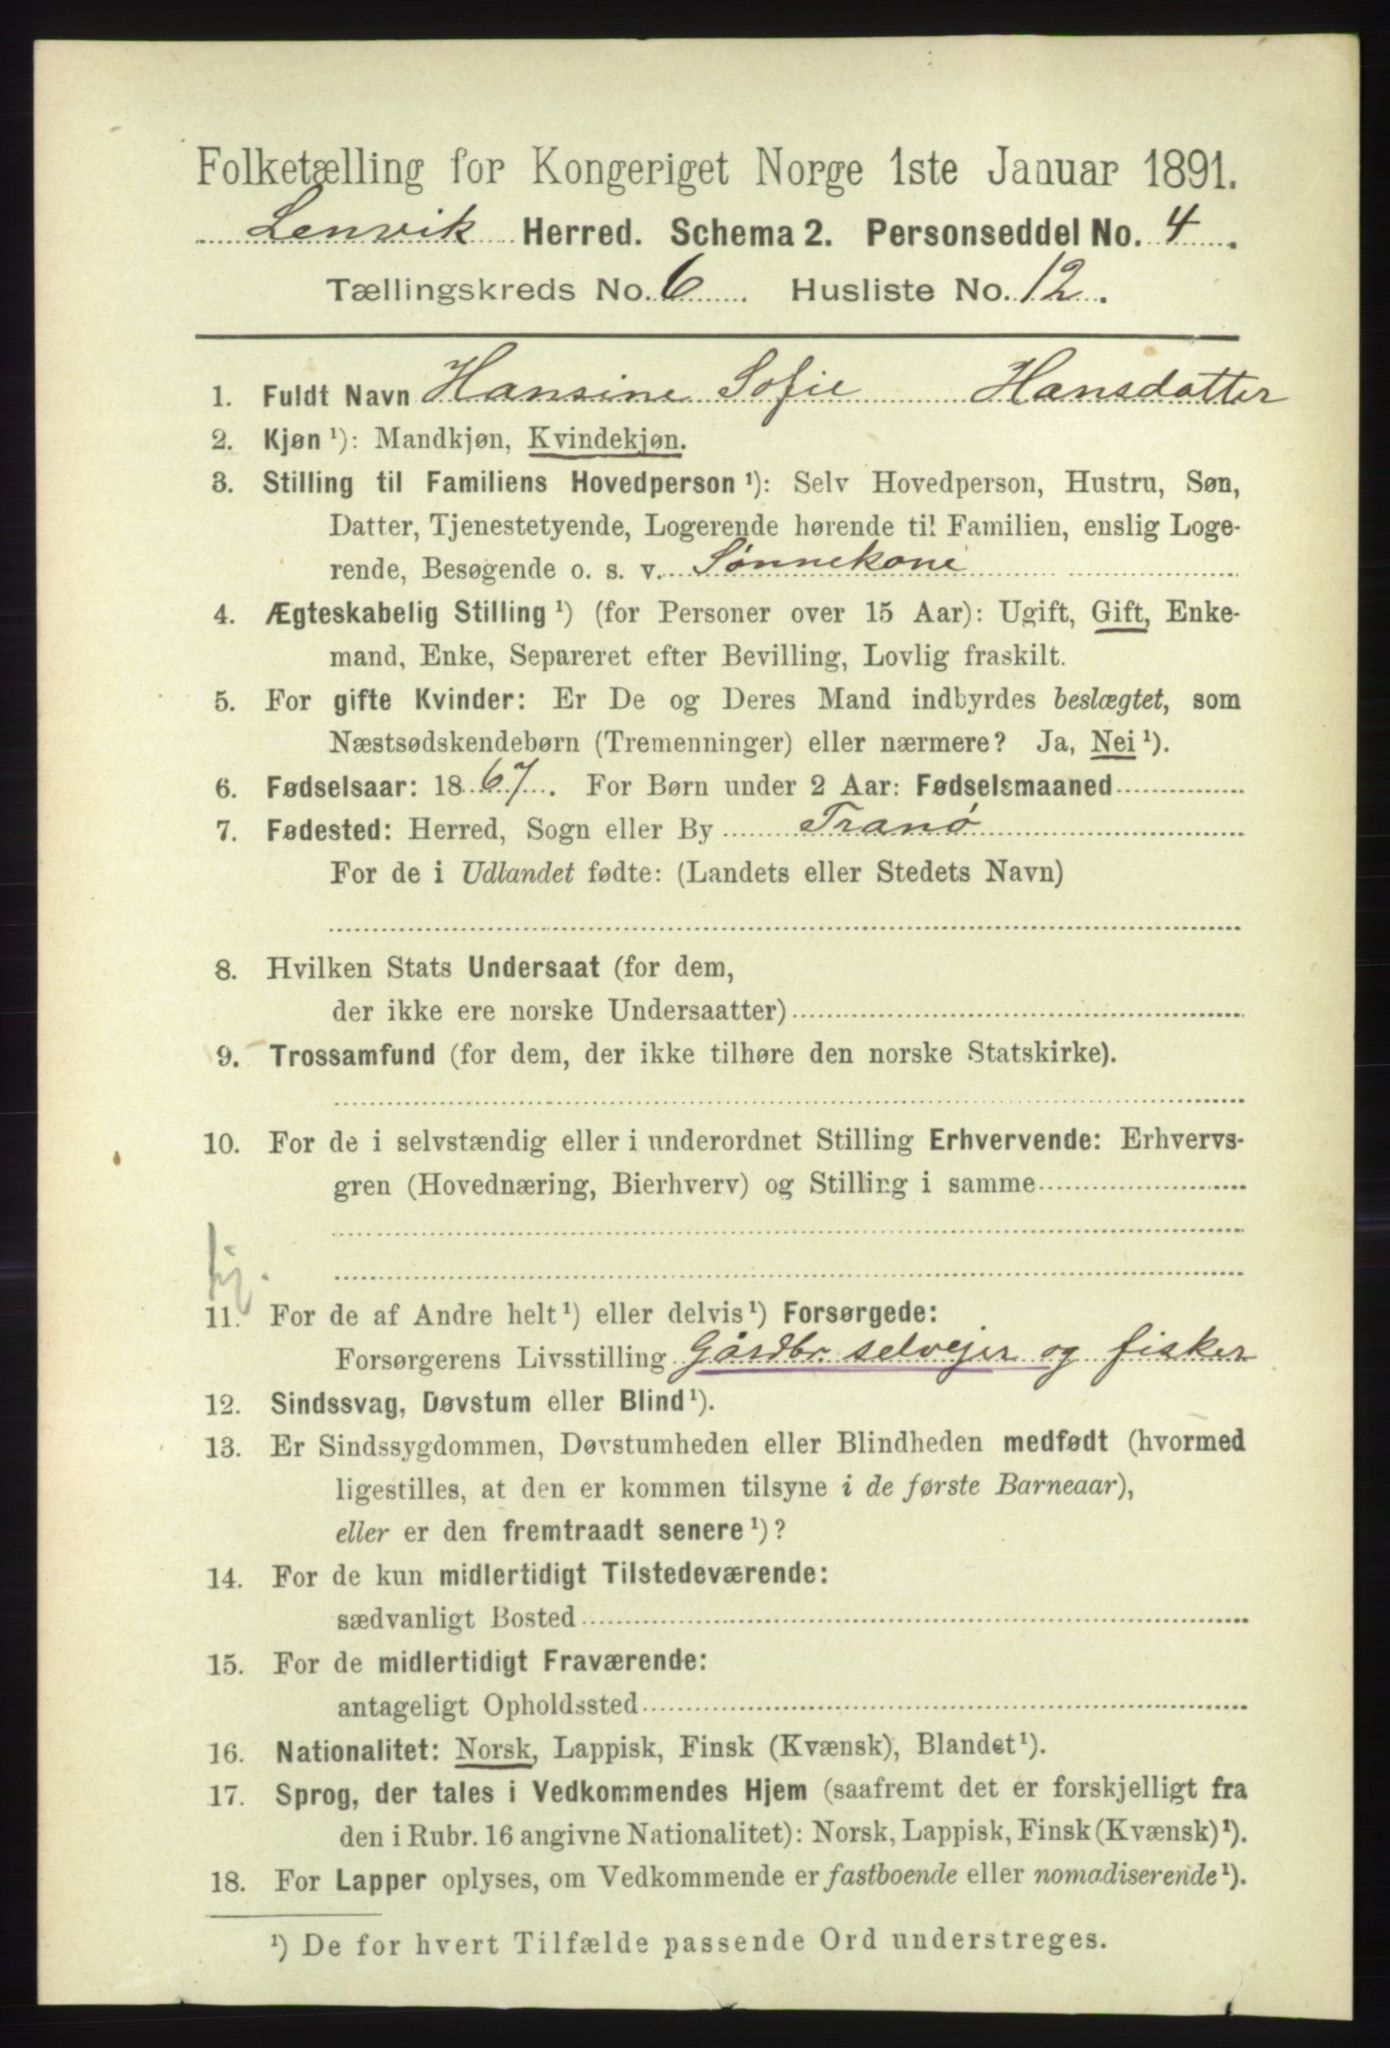 Folketælling for Kongeriget Norge 1ste Januar 1891.
Lenvik Herred. Schema 2. Personseddel No. 4.
Tællingskreds No. 6. Husliste No. 12.
1. Fuldt Navn Hansine Sofie Hansdatter
2. Kjøn ¹): Mandkjøn, Kvindekjøn.
3. Stilling til Familiens Hovedperson ¹): Selv Hovedperson, Hustru, Søn,
Datter, Tjenestetyende, Logerende hørende til Familien, enslig Loge-
rende, Besøgende o. s. v. Sønnekone
4. Ægteskabelig Stilling ¹) (for Personer over 15 Aar): Ugift, Gift, Enke-
mand, Enke, Separeret efter Bevilling, Lovlig fraskilt.
5. For gifte Kvinder: Er De og Deres Mand indbyrdes beslægtet, som
Næstsødskendebørn (Tremenninger) eller nærmere? Ja, Nei ¹).
6. Fødselsaar: 1867. For Børn under 2 Aar: Fødselsmaaned
7. Fødested: Herred, Sogn eller By Tranø
For de i Udlandet fødte: (Landets eller Stedets Navn)
8. Hvilken Stats Undersaat (for dem,
der ikke ere norske Undersaatter)
9. Trossamfund (for dem, der ikke tilhøre den norske Statskirke).
10. For de i selvstændig eller i underordnet Stilling Erhvervende: Erhvervs-
gren (Hovednæring, Bierhverv) og Stilling i samme
11. For de af Andre helt ¹) eller delvis ¹) Forsørgede:
Forsørgerens Livsstilling Gårdbr. selvejer og fisker
12. Sindssvag, Døvstum eller Blind ¹).
13. Er Sindssygdommen, Døvstumheden eller Blindheden medfødt (hvormed
ligestilles, at den er kommen tilsyne i de første Barneaar),
eller er den fremtraadt senere ¹)?
14. For de kun midlertidigt Tilstedeværende:
sædvanligt Bosted
15. For de midlertidigt Fraværende:
antageligt Opholdssted
16. Nationalitet: Norsk, Lappisk, Finsk (Kvænsk), Blandet ¹).
17. Sprog, der tales i Vedkommendes Hjem (saafremt det er forskjelligt fra
den i Rubr. 16 angivne Nationalitet): Norsk, Lappisk, Finsk (Kvænsk) ¹).
18. For Lapper oplyses, om Vedkommende er fastboende eller nomadiserende ¹).
¹) De for hvert Tilfælde passende Ord understreges.